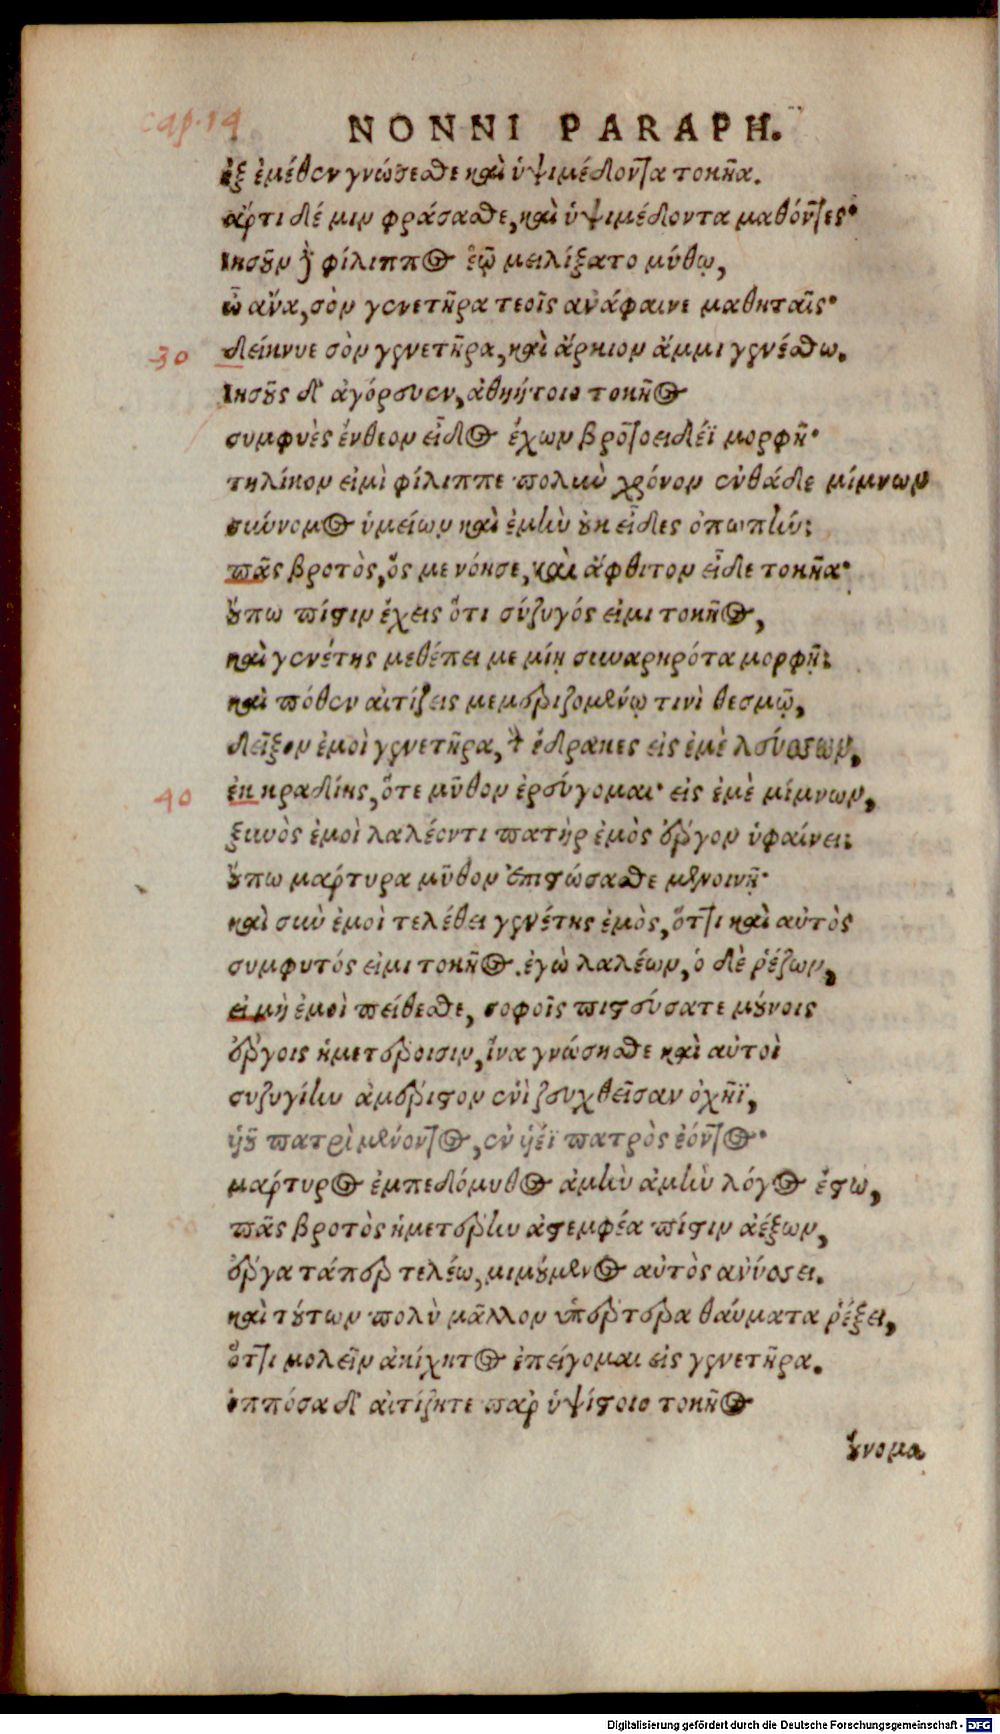 cap. 14
NONNI PARAPH.
ἐξ ἐμέθεν γνώσεσθε καὶ ὑψιμέδοντα τοκῆα.
ἄρτι δέ μιν φράσασθε, καὶ ὑψιμέδοντα μαθόντες·
Ἰησοῦν δὲ φίλιππος ἑῷ μειλίξατο μύθῳ,
ὦ ἄνα, σὸν γενετῆρα τεοῖς ἀνάφαινε μαθηταῖς·
30 δείκνυε σὸν γενετῆρα, καὶ ἄρκιον ἄμμι γενέσθω.
Ἰησοῦς δ' ἀγόρευεν, ἀθηήτοιο τοκῆος
συμφυὲς ἔνθεον εἶδος ἔχων βροτοειδέϊ μορφῇ·
τηλίκον εἰμὶ φίλιππε πολὺν χρόνον ἐνθάδε μίμνων
σύννομος ὑμείων καὶ ἐμὴν οὐκ εἶδες ὀπωπήν;
πᾶς βροτὸς, ὅς με νόησε, καὶ ἄφθιτον εἶδε τοκῆα·
οὔπω πίστιν ἔχεις ὅτι σύζυγός εἰμι τοκῆος,
καὶ γενέτης μεθέπει με μίῃ συναρηρότα μορφῇ;
καὶ πόθεν αἰτίζεις μεμεριζομένῳ τινὶ θεσμῷ,
δεῖξον ἐμοὶ γενετῆρα, τὸν ἔδρακες εἰς ἐμὲ λεύσσων,
40 ἐκ κραδίης, ὅτε μῦθον ἐρεύγομαι· εἰς ἐμὲ μίμνων,
ξυνὸς ἐμοὶ λαλέοντι πατὴρ ἐμὸς ἔργον ὑφαίνει;
οὔπω μάρτυρα μῦθον ἐπιστώσασθε μενοινῇ·
καὶ σὺν ἐμοὶ τελέθει γενέτης ἐμὸς, ὅττι καὶ αὐτὸς
συμφυτός εἰμι τοκῆος. ἐγὼ λαλέων, ὁ δὲ ῥέζων,
εἰ μὴ ἐμοὶ πείθεσθε, σοφοῖς πιστεύσατε μούνοις
ἔργοις ἡμετέροισιν, ἵνα γνώσησθε καὶ αὐτοὶ
συζυγίην ἀμέριστον ἑνὶ ζευχθεῖσαν ὀχῆϊ,
υἱοῦ πατρὶ μένοντος, ἐν υἱέϊ πατρὸς ἐόντος·
μάρτυρος ἐμπεδόμυθος ἀμὴν ἀμὴν λόγος ἔστω,
πᾶς βροτὸς ἡμετέρην ἀστεμφέα πίστιν ἀέξων,
ἔργα τάπερ τελέω, μιμούμενος αὐτὸς ἀνύσσει.
καὶ τούτων πολὺ μᾶλλον ὑπέρτερα θαύματα ῥέξει,
ὅττι μολεῖν ἀκίχητος ἐπείγομαι εἰς γενετῆρα.
ὁππόσα δ' αἰτίζητε παρ' ὑψίστοιο τοκῆος
οὔνομα
Digitalisierung gefördert durch die Deutsche Forschungsgemeinschaft - DFG